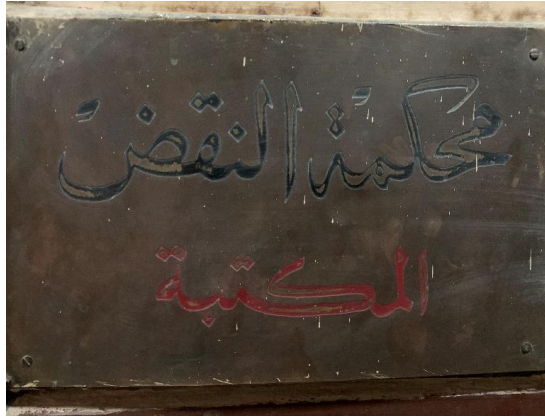 محكمة النقض
المكتبة